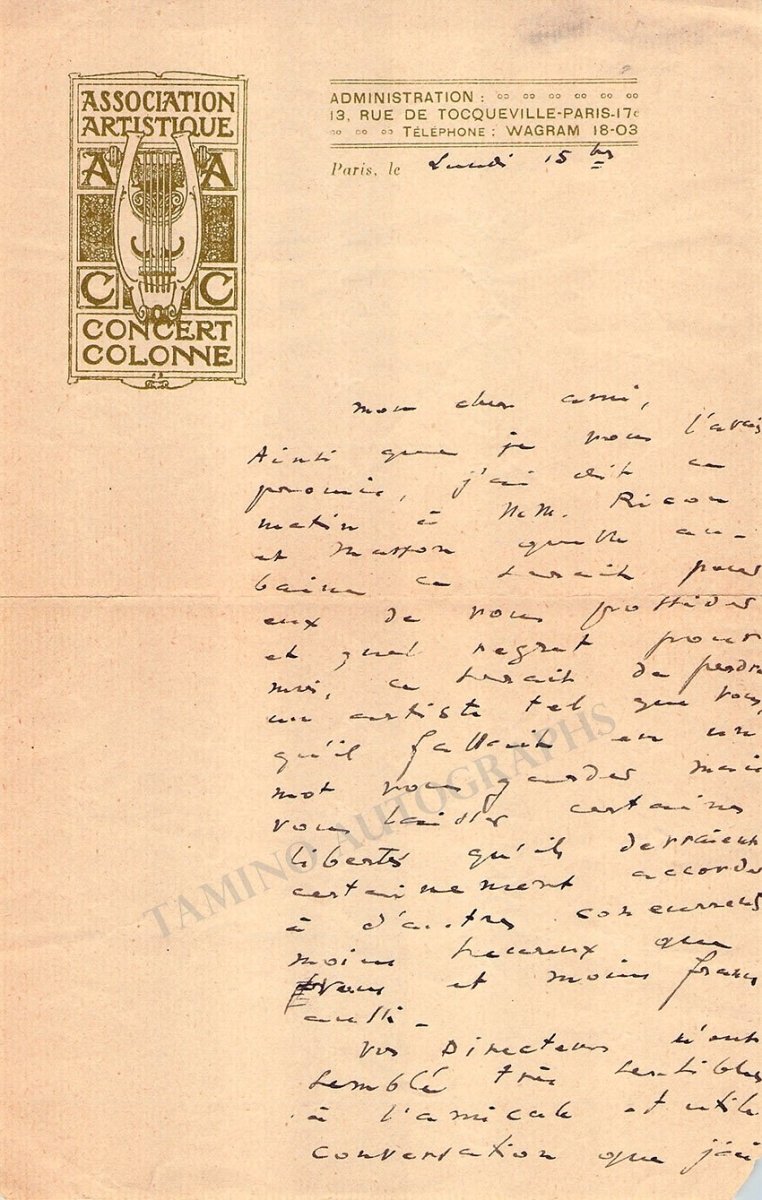 ASSOCIATION
ARTISTIQUE
A A
C C
CONCERT
COLONNE
ADMINISTRATION :
13, RUE DE TOCQUEVILLE-PARIS-17e
TÉLÉPHONE : WAGRAM 18-03
Paris, le Lundi 15 bre
mon cher ami,
Ainsi que je vous l'avais
promis, j'ai dit ce
matin à MM. Ricou
et Masson quelle au-
baine ce serait pour
eux de vous posséder
et quel regret pour
moi, ce serait de perdre
un artiste tel que vous,
qu'il fallait en un
mot vous garder mais
vous laisser certaines
libertés qu'ils devraient
certainement accorder
à d'autres concurrents
moins heureux que
vous et moins francs
aussi.
Vos Directeurs m'ont
semblé très sensibles
à l'amicale et utile
conversation que j'ai
TAMINO AUTOGRAPHS